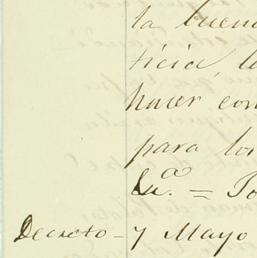 la buena
ticia, lo
hacer con
para los
Ex.ª = Jo
Decreto - y Mayo